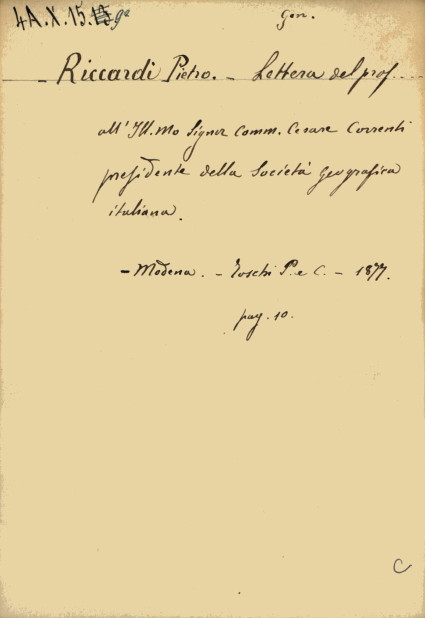 4A.X.15.
gen.
– Riccardi Pietro. – Lettera del prof. ...
all' Ill.mo Signor Comm. Cesare Correnti
presidente della Società geografica
italiana.
– Modena. – Toschi P. e C. – 1877.
pag. 10.
C